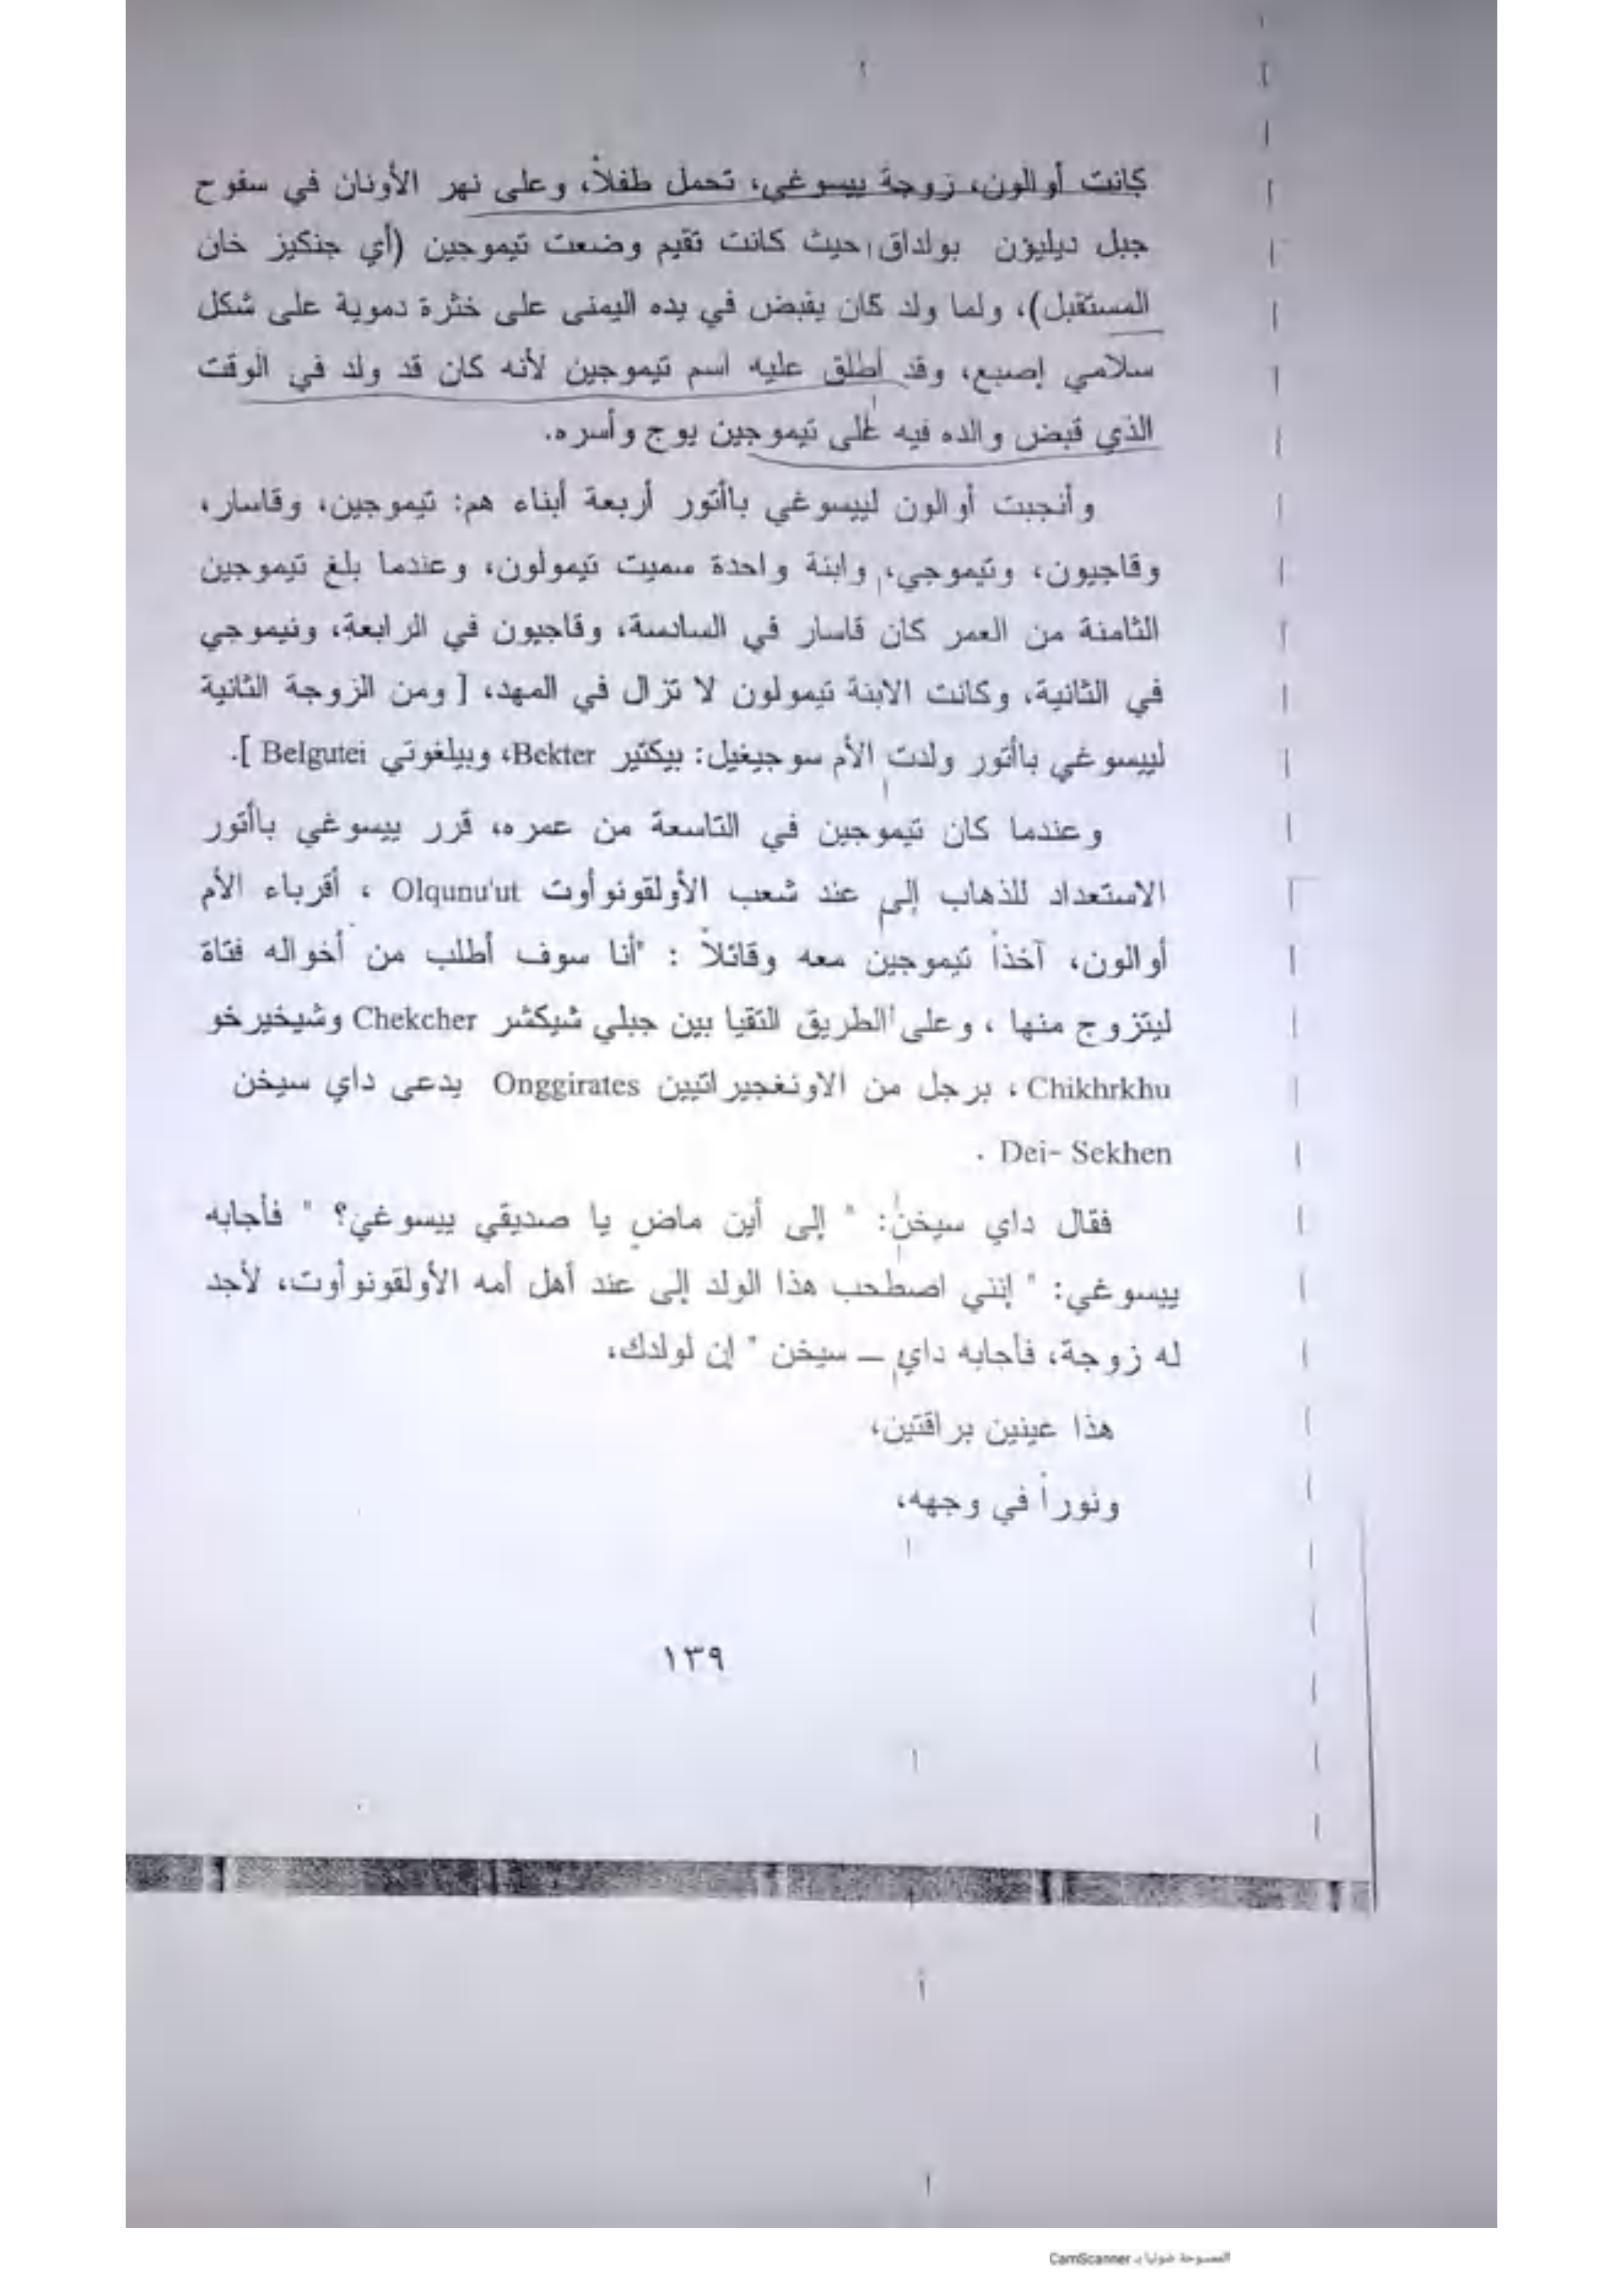 كانت أوالون، زوجة ييسوغي، تحمل طفلاً، وعلى نهر الأونان في سفوح
جبل ديليؤن بولداق حيث كانت تقيم وضعت تيموجين (أي جنكيز خان
المستقبل)، ولما ولد كان يقبض في يده اليمنى على خثرة دموية على شكل
سلامي إصبع، وقد أطلق عليه اسم تيموجين لأنه كان قد ولد في الوقت
الذي قبض والده فيه على تيموجين يوج وأسره.
وأنجبت أوالون لييسوغي باأتور أربعة أبناء هم: تيموجين، وقاسار،
وقاجيون، وتيموجي، وابنة واحدة سميت تيمولون، وعندما بلغ تيموجين
الثامنة من العمر كان قاسار في السادسة، وقاجيون في الرابعة، وتيموجي
في الثانية، وكانت الابنة تيمولون لا تزال في المهد، [ ومن الزوجة الثانية
لييسوغي باأتور ولدت الأم سوجيغيل: بيكتير Bekter، وبيلغوتي Belgutei ].
وعندما كان تيموجين في التاسعة من عمره، قرر ييسوغي باأتور
الاستعداد للذهاب إلى عند شعب الأولقونوأوت Olqunu'ut ، أقرباء الأم
أوالون، آخذاً تيموجين معه وقائلاً : "أنا سوف أطلب من أخواله فتاة
ليتزوج منها ، وعلى الطريق التقيا بين جبلي شيكشر Chekcher وشيخيرخو
Chikhrkhu ، برجل من الاونغجيراتيين Onggirates يدعى داي سيخن
Dei- Sekhen .
فقال داي سيخن: " إلى أين ماضٍ يا صديقي ييسوغي؟ " فأجابه
ييسوغي: " إنني اصطحب هذا الولد إلى عند أهل أمه الأولقونوأوت، لأجد
له زوجة، فأجابه داي – سيخن " إن لولدك،
هذا عينين براقتين،
ونوراً في وجهه،
١٣٩
الممسوحة ضوئيا بـ CamScanner